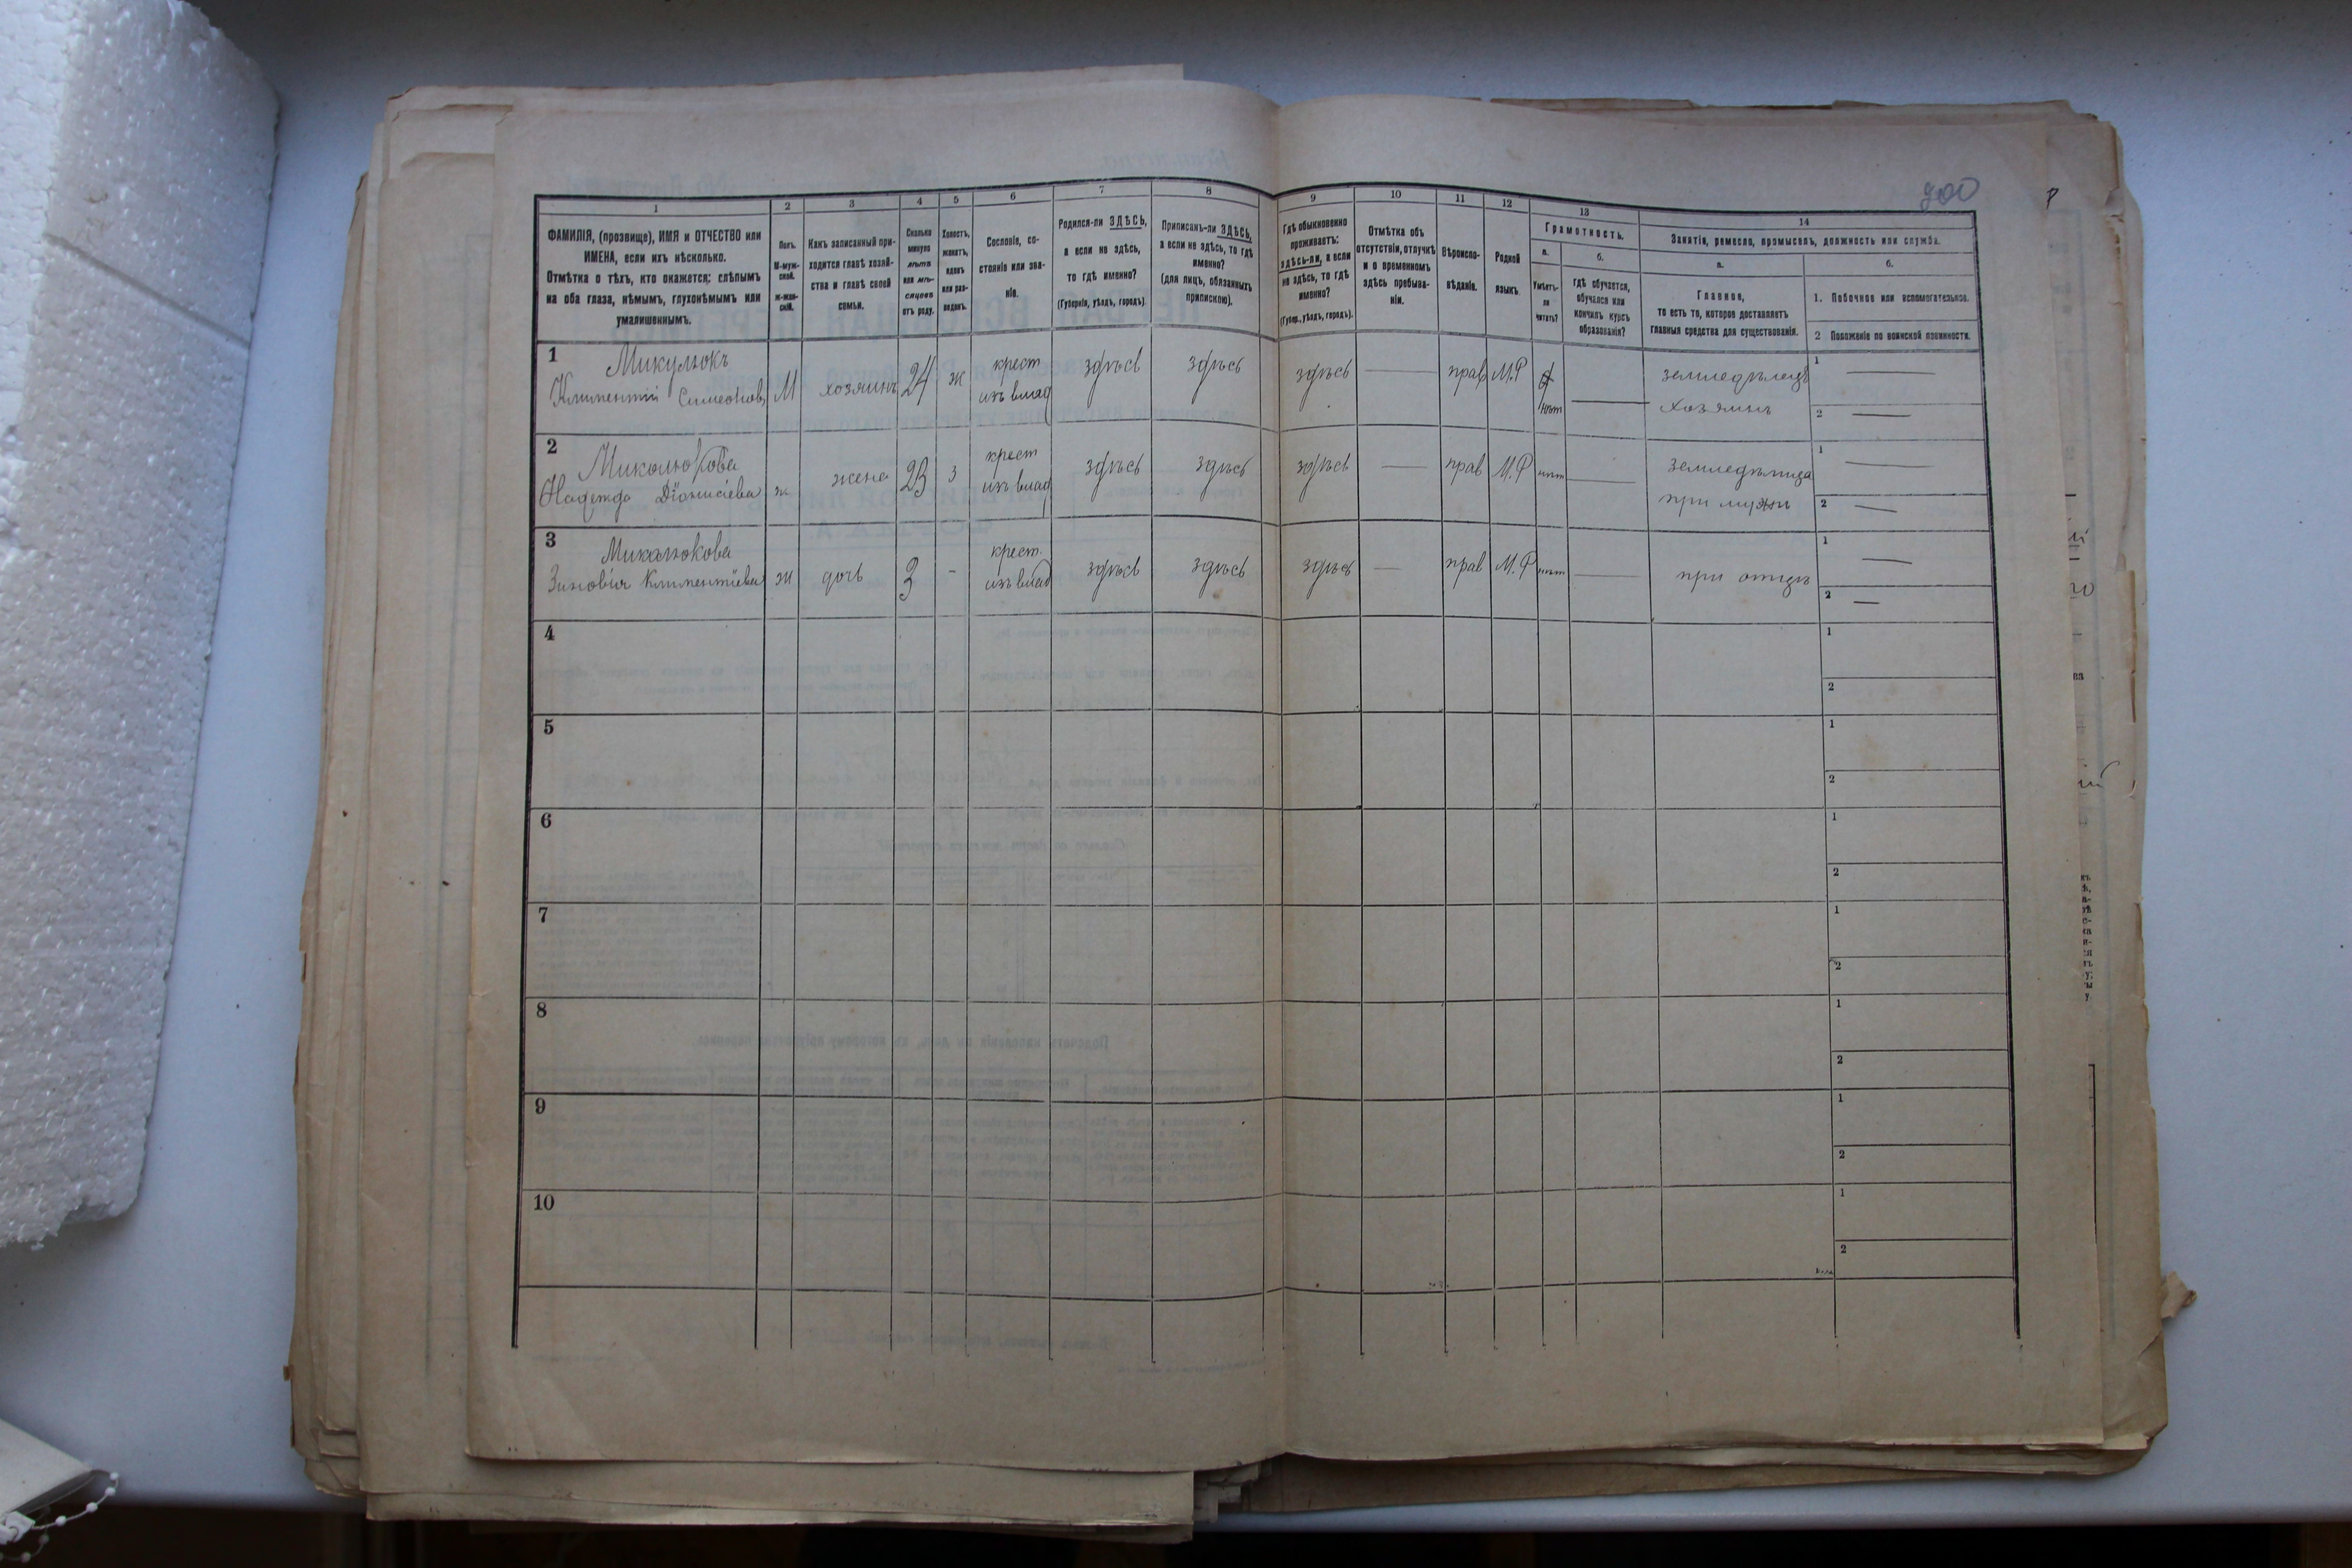 900
1
2
3
4
5
6
7
8
9
10
11
12
13
14
ФАМИЛІЯ, (прозвище), ИМЯ и ОТЧЕСТВО или
ИМЕНА, если ихъ нѣсколько.
Отмѣтка о тѣхъ, кто окажется: слѣпымъ
на оба глаза, нѣмымъ, глухонѣмымъ или
умалишеннымъ.
Полъ.
М-муж-
ской.
Ж-жен-
скій.
Какъ записанный при-
ходится главѣ хозяй-
ства и главѣ своей
семьи.
Сколько
минуло
лѣтъ
или мѣ-
сяцевъ
отъ роду.
Холостъ,
женатъ,
вдовъ
или раз-
веденъ.
Сословіе, со-
стояніе или зва-
ніе.
Родился-ли ЗДѢСЬ,
а если не здѣсь,
то гдѣ именно?
(Губернія, уѣздъ, городъ).
Приписанъ-ли ЗДѢСЬ,
а если не здѣсь, то гдѣ
именно?
(для лицъ, обязанныхъ
припискою).
Гдѣ обыкновенно
проживаетъ:
здѣсь-ли, а если
не здѣсь, то гдѣ
именно?
(Губер., уѣздъ, городъ).
Отмѣтка объ
отсутствіи, отлучкѣ
и о временномъ
здѣсь пребыва-
ніи.
Вѣроиспо-
вѣданіе.
Родной
языкъ.
Грамотность.
а.
Умѣетъ-
ли
читать?
б.
гдѣ обучается,
обучался или
кончилъ курсъ
образованія?
Занятіе, ремесло, промыселъ, должность или служба.
а.
Главное,
то есть то, которое доставляетъ
главныя средства для существованія.
б.
1. Побочное или вспомогательное.
2 Положеніе по воинской повинности.
1
Микулюкъ
Климентій Симеоновъ
М
хозяинъ
24
ж
крест
изъ влад
здѣсь
здѣсь
здѣсь
прав
М.Р
нѣт
земледѣлецъ
хозяинъ
1
2
2
Миколюкова
Надежда Діонисіева
ж
жена
23
з
крест
изъ влад
здѣсь
здѣсь
здѣсь
прав
М.Р
нѣт
земледѣлица
при мужи
1
2
3
Микалюкова
Зиновія Климентіева
ж
дочь
3
-
крест.
изъ влад
здѣсь
здѣсь
здѣсь
прав
М.Р
нѣт
при отцѣ
1
2
4
1
2
5
1
2
6
1
2
7
1
2
8
1
2
9
1
2
10
1
2